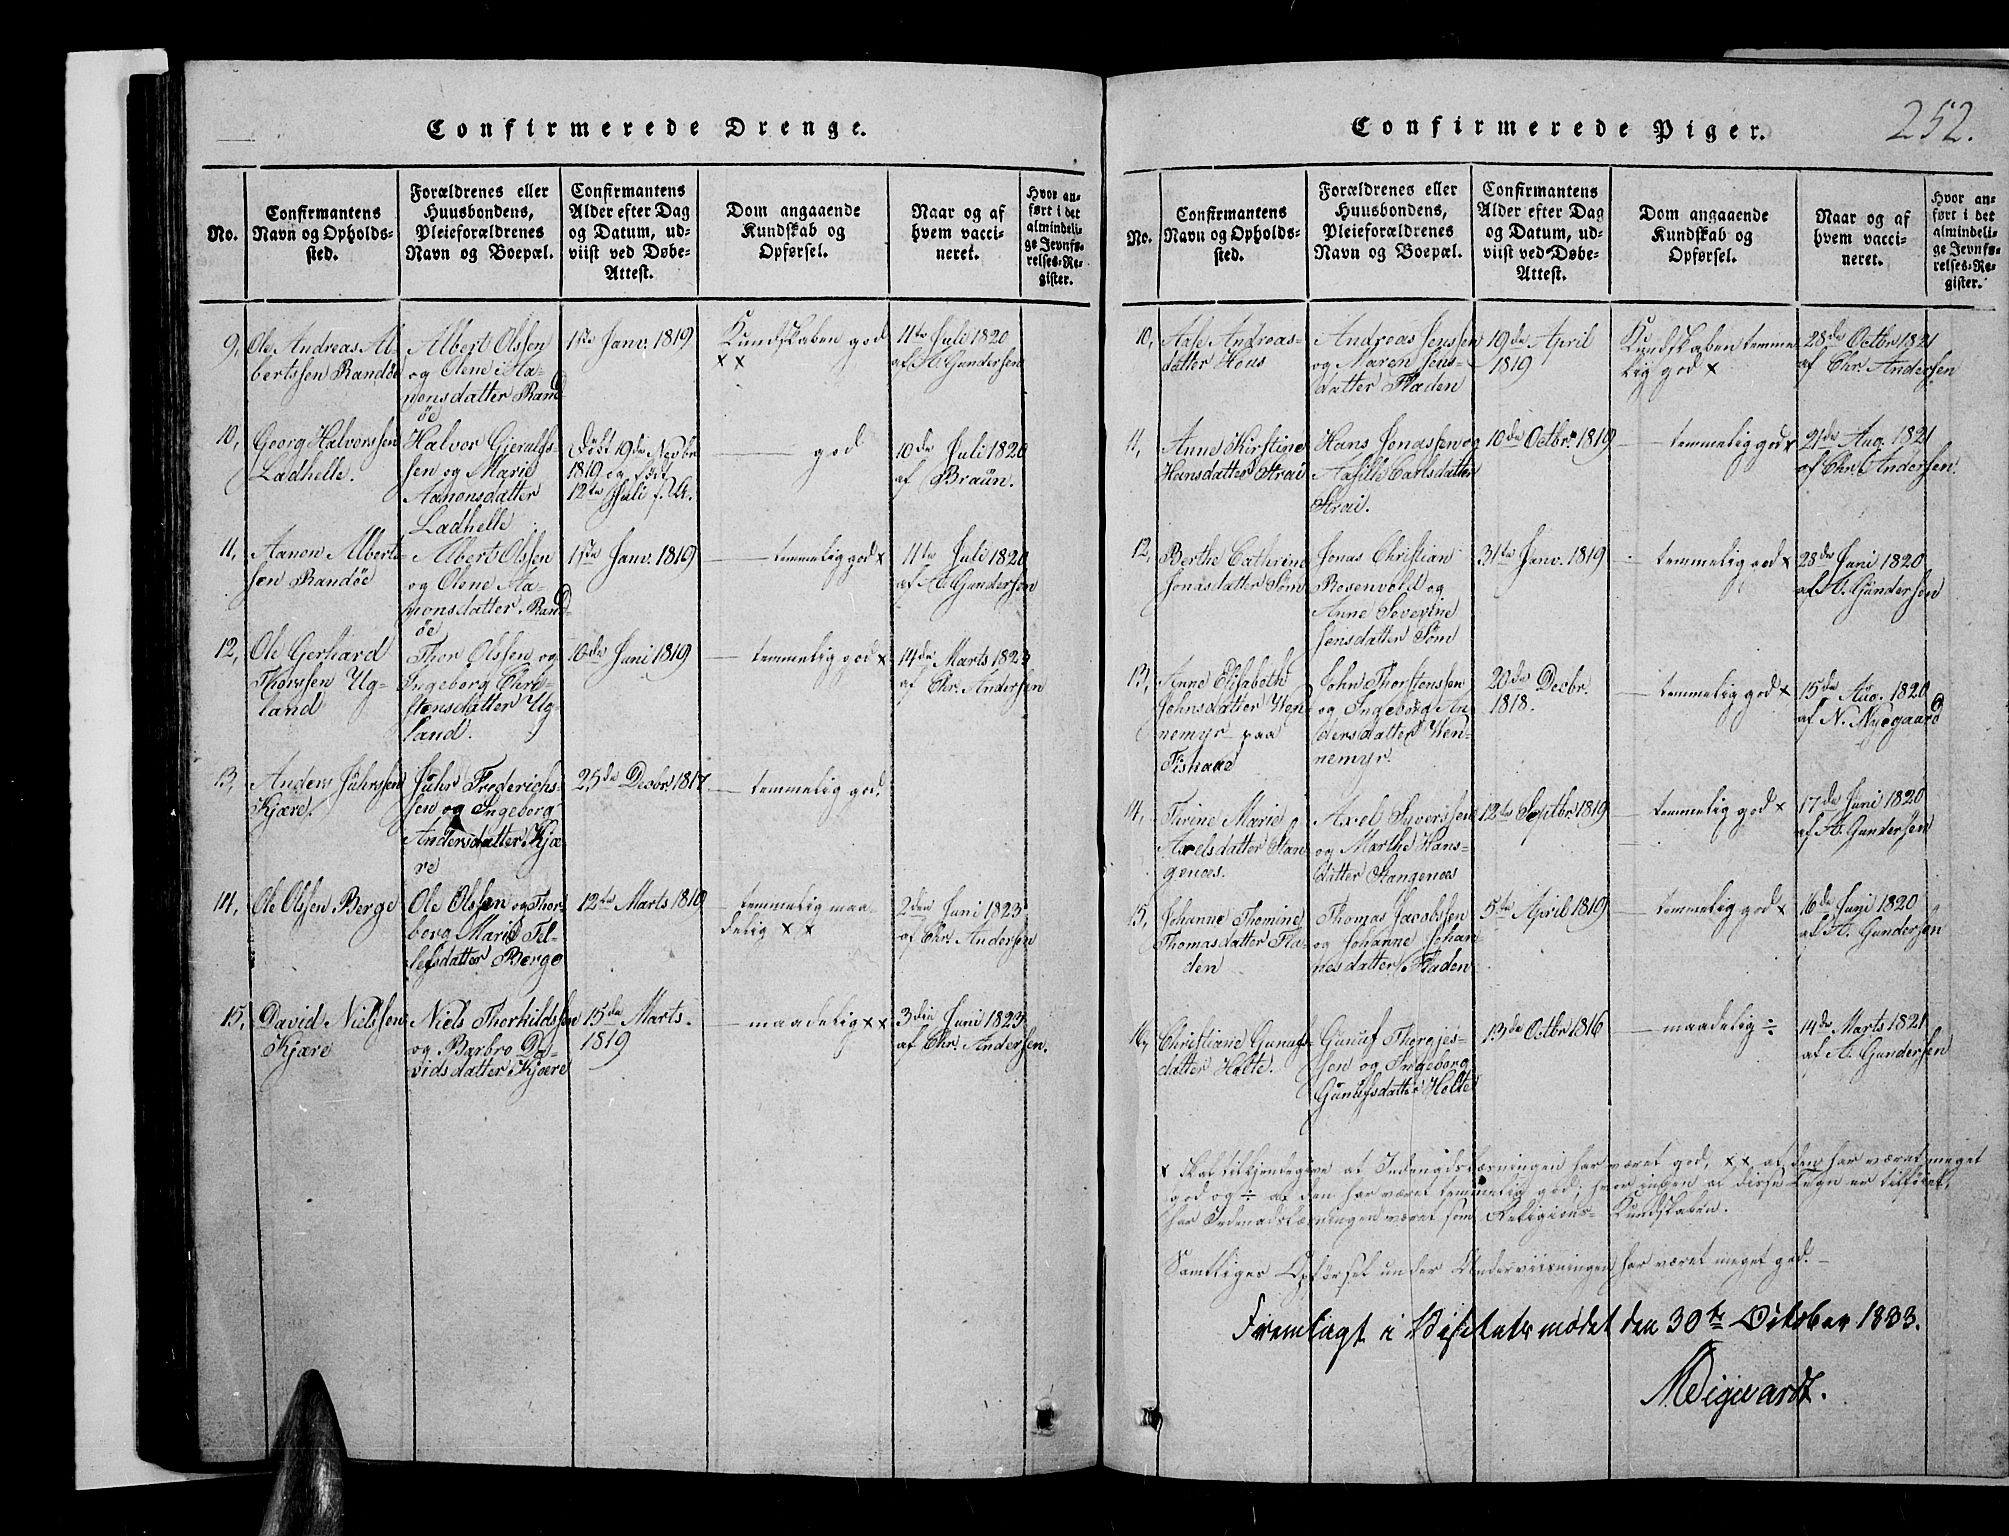 Confirmerede Drenge.
No.
Confirmantens
Navn og Opholds-
sted.
Forældrenes eller
Huusbondens,
Pleieforældrenes
Navn og Boepæl.
Confirmantens
Alder efter Dag
og Datum, ud-
viist ved Døbe-
Attest.
Dom angaaende
Kundskab og
Opførsel.
Naar og af
hvem vacci-
neret.
Hvor an-
ført i det
almindeli-
ge Jevnfø-
relses-Re-
gister.
9, Ole Andreas Al-
bertssen Randöe
Albert Olssen
og Olene Aa-
nonsdatter Rand
öe
1ste Janv. 1819
Kundskaben god
x x
11te Juli 1820
af A. Gundersen
10, Georg Halvorssen
Ladhelle.
Halvor Gjerulfs-
sen og Marie
Aanonsdatter
Ladhelle
Döbt 19de Novbr
1819 og födt
12te Juli s. A.
— god
10de Juli 1820
af Braun.
11, Aanon Alberts-
sen Randöe
Albert Olssen
og Olene Aa-
nonsdatter Rand-
öe
1ste Janv. 1819
— temmelig god x
11te Juli 1820
af A. Gundersen
12, Ole Gerhard
Thorssen Ug-
land
Thor Olssen og
Ingeborg Chri-
stensdatter Ug-
land.
10de Juni 1819
— temmelig god x
14de Marts 1823
af Chr. Andersen
13, Anders Juhrssen
Kjære.
Juhr Frederichs-
sen og Ingeborg
Andersdatter Kjæ
re
25de Decbr 1817
— temmelig god,
14, Ole Olssen Berge
Ole Olssen og Thor-
berg Marie Tel-
lefsdatter Berge
12te Marts 1819
— temmelig maa-
delig x x
2den Juni 1823
af Chr. Andersen
15, David Nielssen
Kjære
Niels Thorkildssen
og Barbro Da-
vidsdatter Kjære
15de Marts
1819
— maadelig x x
3die Juni 1823
af Chr. Andersen.
Confirmerede Piger.
252.
No.
Confirmantens
Navn og Opholds-
sted.
Forældrenes eller
Huusbondens,
Pleieforældrenes
Navn og Boepæl.
Confirmantens
Alder efter Dag
og Datum, ud-
viist ved Døbe-
Attest.
Dom angaaende
Kundskab og
Opførsel.
Naar og af
hvem vacci-
neret.
Hvor an-
ført i det
almindeli-
ge Jevnfø-
relses-Re-
gister.
10, Aase Andreas-
datter Hous
Andreas Jenssen
og Maren Jens-
datter Fladen
19de April
1819
Kundskaben temme
lig god x
28de Octbr 1821
af Chr. Andersen
11, Anne Kirstine
Hansdatter Strai
Hans Jonassen og
Aasille Carlsdatter
Strai.
10de Octbr. 1819
— temmelig god x
21de Aug. 1821
af Chr. Andersen.
12, Berthe Cathrine
Jonasdatter Söm
Jonas Christian
Rosenvold og
Anne Severine
Jensdatter Söm
31te Janv. 1819
- temmelig god x
28de Juni 1820
af A. Gundersen
13, Anne Elisabeth
Johnsdatter Wen
nemyr paa
Fiskaae
John Thorstenssen
og Ingeborg An-
dersdatter Wen-
nemyr.
20de Decbr.
1818.
— temmelig god x
15de Aug. 1820
af N. Nyegaard
14, Thrine Marie
Axelsdatter Stan
genæs.
Axel Syverssen
og Marthe Hans-
datter Stangenæs
12te Septbr 1819
— temmelig god x
17de Juni 1820
af A. Gundersen
15, Johanne Thomine
Thomasdatter Fla-
den
Thomas Jacobssen
og Johanne Johan-
nesdatter Fladen
5te April 1819
— temmelig god x
16de Juni 1820
af A. Gundersen
16, Christiane Gunufs-
datter Holte.
Gunuf Thorgjes-
sen og Ingeborg
Gunufsdatter Holte
13de Octbr 1816
— maadelig ÷
14de Marts 1821
af A. Gundersen
x skal tilkjendegive at Indenadslæsningen har været god, x x at den har været meget
god og ÷ at den har været temmelig god; hvor ingen af disse Tegn er tilföiet,
har Indenadslæsningen været som Religions-Kundskaben.
Samtliges Opförsel under Underviisningen har været meget god. —
Fremlagt i Visitatsmödet den 30te October 1833.